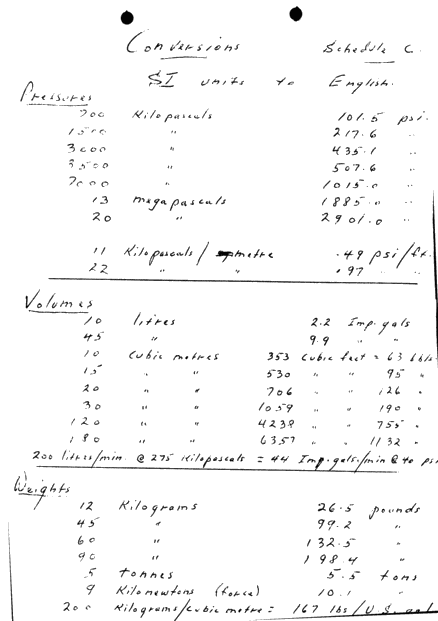 Conversions Schedule C.
SI units to English.
Pressures
700 Kilopascals 101.5 psi.
1500 " 217.6 "
3000 " 435.1 "
3500 " 507.6 "
7000 " 1015.0 "
13 megapascals 1885.0 "
20 " 2901.0 "
11 Kilopascals/metre .49 psi/ft.
22 " " .97 " "
Volumes
10 litres 2.2 Imp. gals
45 " 9.9 " "
10 Cubic metres 353 Cubic feet = 63 bbls
15 " " 530 " " 95 "
20 " " 706 " " 126 "
30 " " 1059 " " 190 "
120 " " 4238 " " 755 "
180 " " 6357 " " 1132 "
200 litres/min @ 275 Kilopascals = 44 Imp. gals./min @ 40 psi
Weights
12 Kilograms 26.5 pounds
45 " 99.2 "
60 " 132.5 "
90 " 198.4 "
5 tonnes 5.5 tons
9 Kilonewtons (force) 10.1 "
200 Kilograms/cubic metre = 167 lbs/U.S. gal